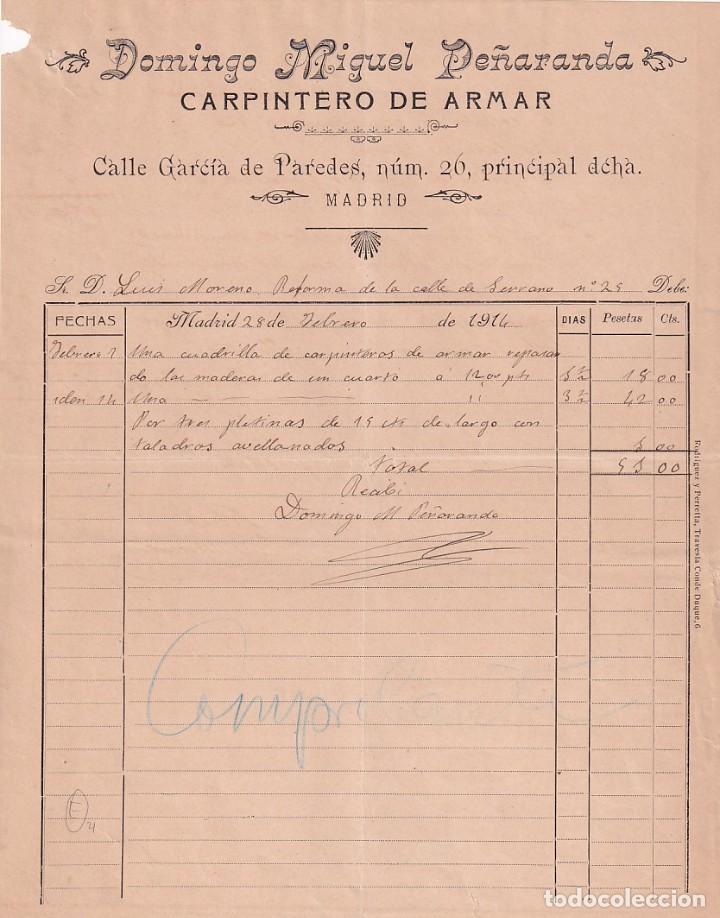 Domingo Miguel Peñaranda
CARPINTERO DE ARMAR
Calle García de Paredes, núm. 26, principal dcha.
MADRID
Sr. D. Luis Moreno Reforma de la calle de Serrano nº 25 Debe:
FECHAS Madrid 28 de Febrero de 1914 DIAS Pesetas Cts.
Febrero 7 Una cuadrilla de carpinteros de armar reparan
do las maderas de un cuarto a 12,00 pts 18 00
idem 14 Una " 3 ½ 42 00
Por tres pletinas de 15 de largo con
taladros avellanados 00
Total 00
Recibi
Domingo M Peñaranda
Rodríguez y Perretta, Travesía Conde Duque, 6
E
todocoleccion